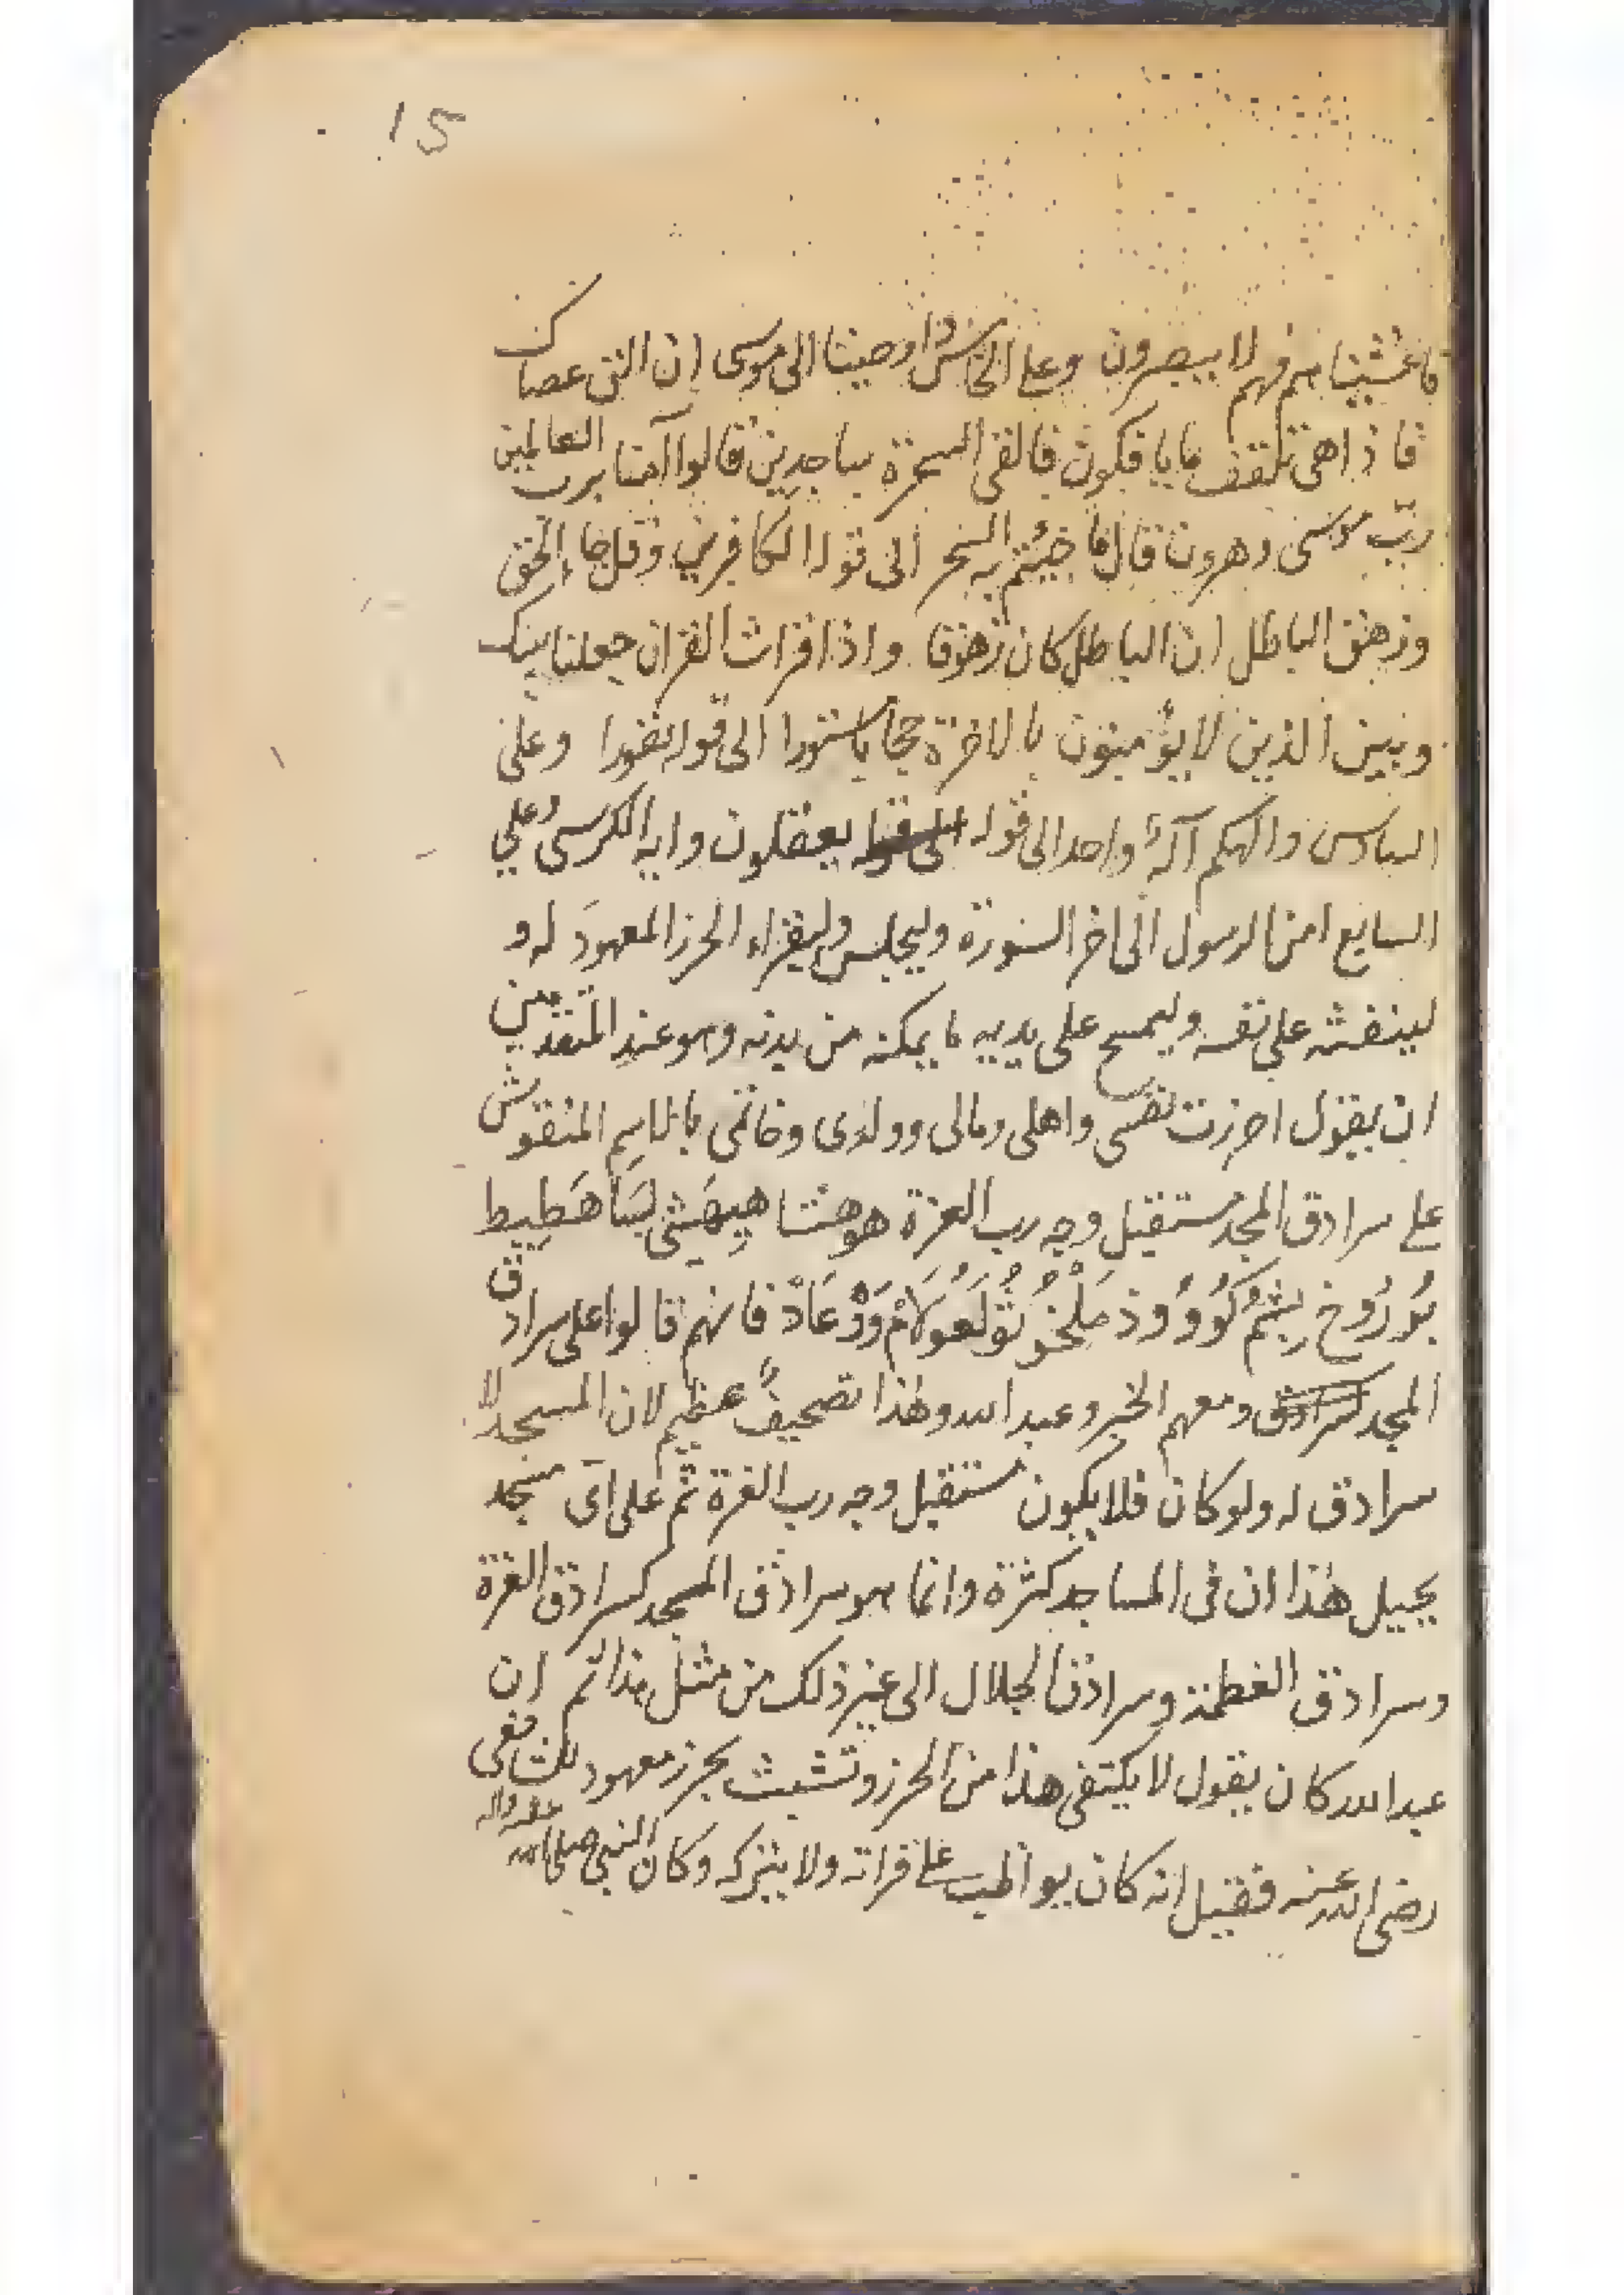 15
فاغشيناهم فهم لا يبصرون وعلى الخامس واوحينا الى موسى ان الق عصاك
فاذا هى تلقف ما يافكون فالقى السحرة ساجدين قالوا آمنا برب العالمين
ربّ موسى وهرون قال ما جئتم به السحر الى قوله الكافرين وقل جاء الحق
وزهق الباطل ان الباطل كان زهوقا واذا قرات القران جعلنا بينك
وبين الذين لا يؤمنون بالاخرة حجابا مستورا الى قوله نفورا وعلى
السادس والهكم آله واحد الى قوله يعقلون واية الكرسى وعلى
السابع امن الرسول الى اخر السورة وليجلس وليقراء الحرز المعهود له و
لينفثه على نفسه وليمسح على يديه ما يمكنه من بدنه وهو عند المتقدمين
ان يقول احرزت نفسى واهلى ومالى وولدى وخاتمى بالاسم المنقوش
على سرادق المجد مستقبل وجه رب العزة هوهشا هيهشى
فانهم قالوا على سرادق
المجد ومعهم الخبر وعبد الله وهذا تصحيفٌ عظيم لان المسجد لا
سرادق له ولو كان فلا يكون مستقبل وجه رب العزة ثم على آى مسجد
يحيل هذا ان فى المساجد كثرة وانما هو سرادق المجد كسرادق العزة
وسرادق العظمة وسرادق الجلال الى غير ذلك من مثل هذا ثم ان
عبد الله كان يقول لا يكتفى هذا من الحرز وتشبث بحرز معهود للشافعى
رضى الله عنه فقيل انه كان يواظب على قراته ولا يتركه وكان النبى صلى الله عليه واله